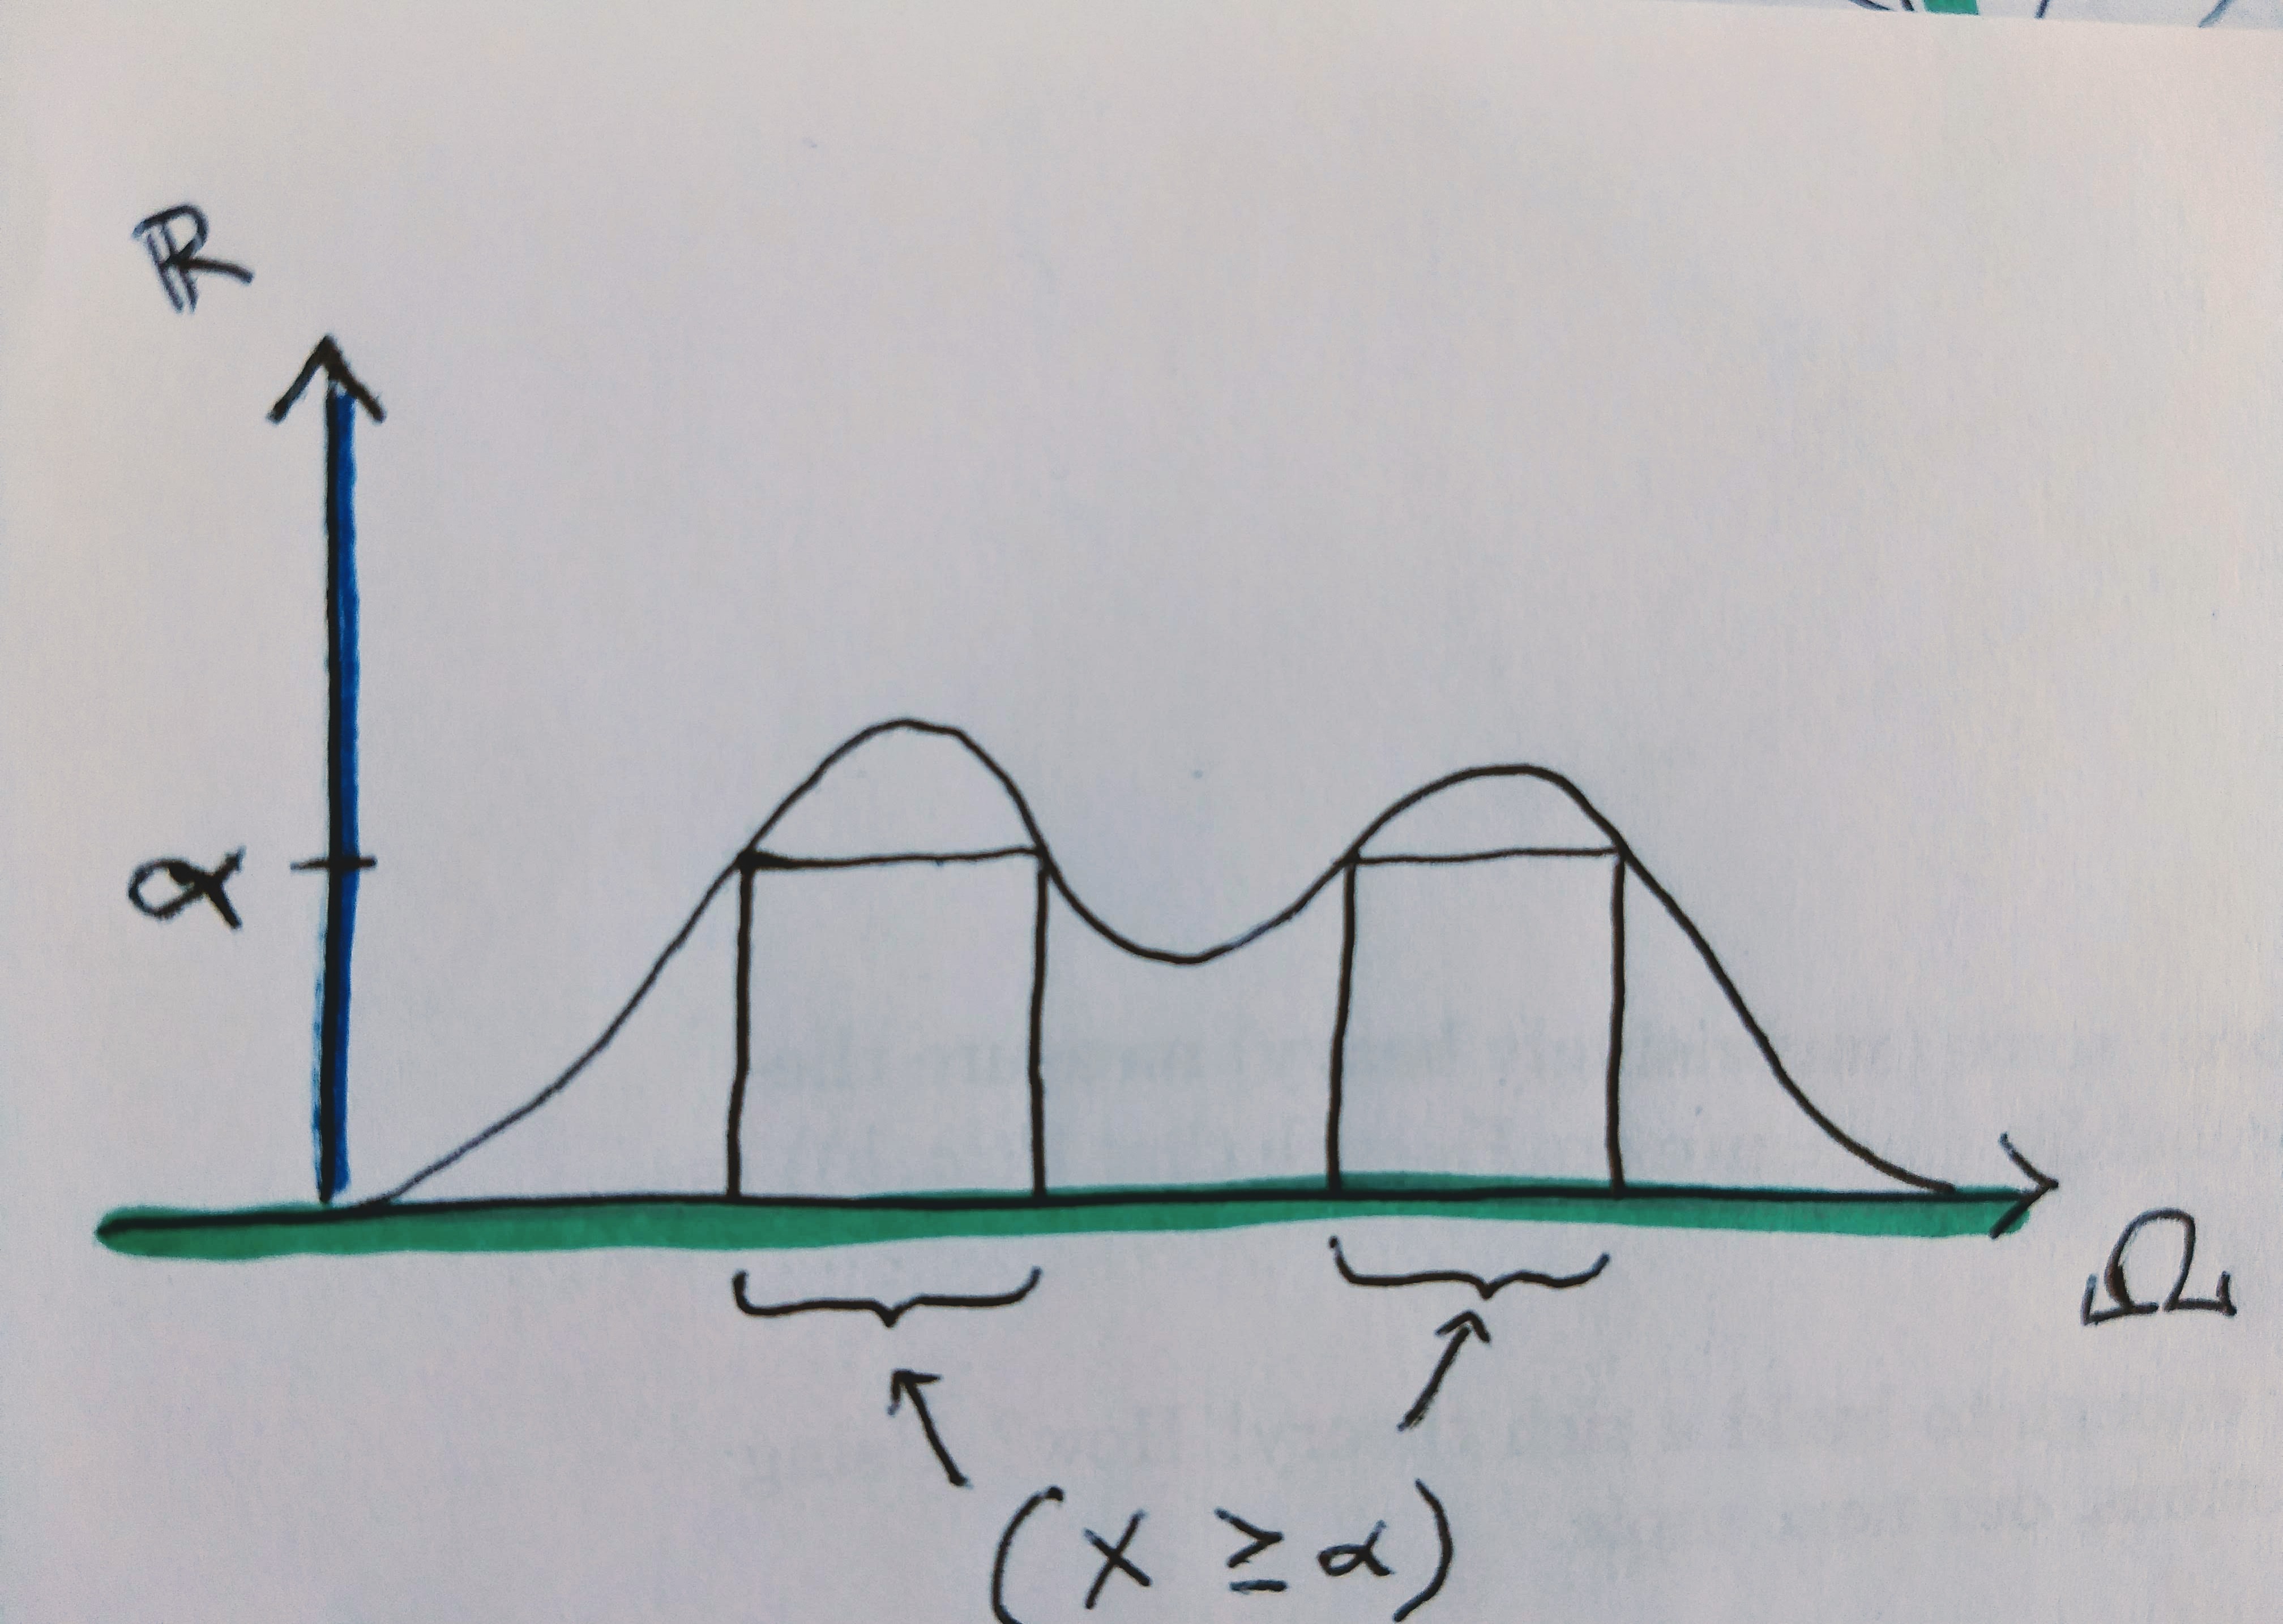 ℝ
α
Ω
(X ≥ α)